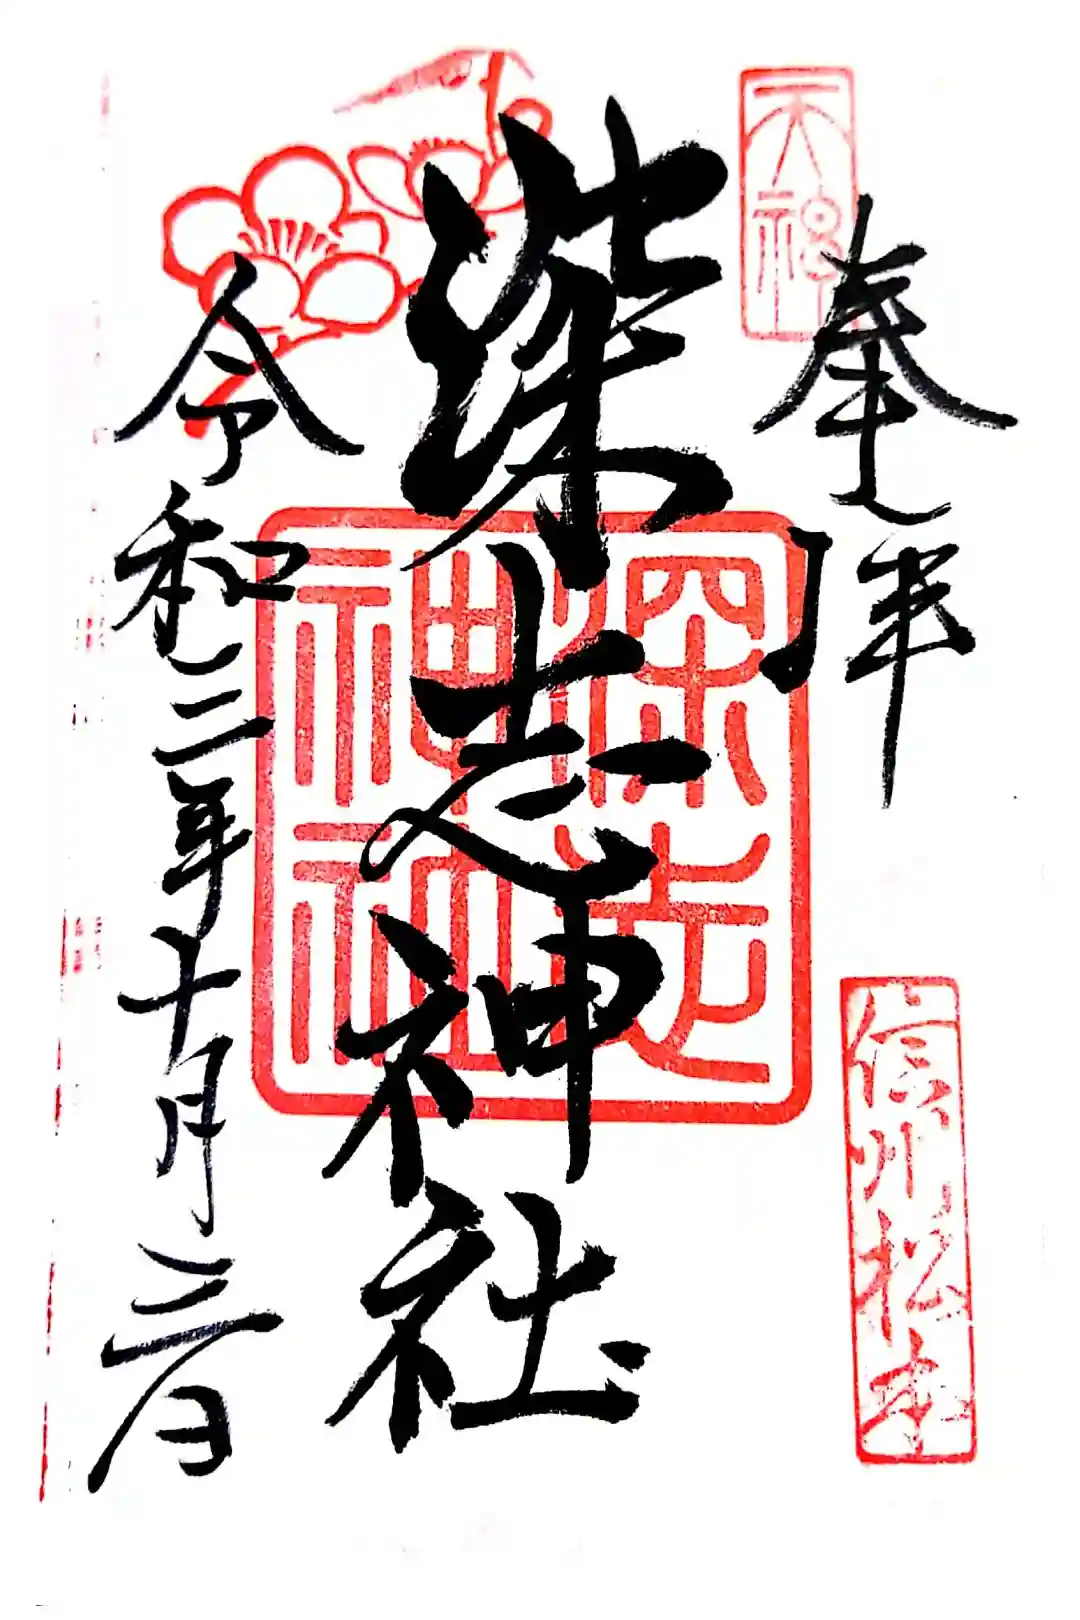 天神
奉拝
信州松本
深志神社
深志
神社
令和二年十月三日